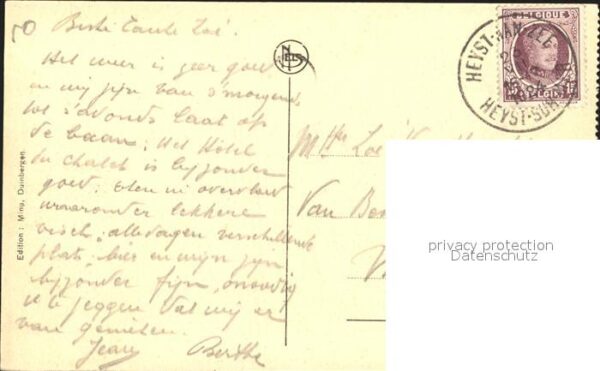 50
Beste Tante Zoé.
Het weer is zeer goed
en wij zijn van s'morgens
tot s'avonds laat op
de baan; Het Hôtel
du chalet is bijzonder
goed; Eten in overvloed
waaronder lekkere
visch; alledagen verschillende
plats; bier en wijn zijn
bijzonder fijn, onnoodig
U te zeggen dat wij er
van genieten.
Jean Berthe
Edition : Minu, Duinbergen.
BELGIQUE
15 15
HEYST-AAN-ZEE
HEYST-SUR
Zoé
Van
privacy protection
Datenschutz